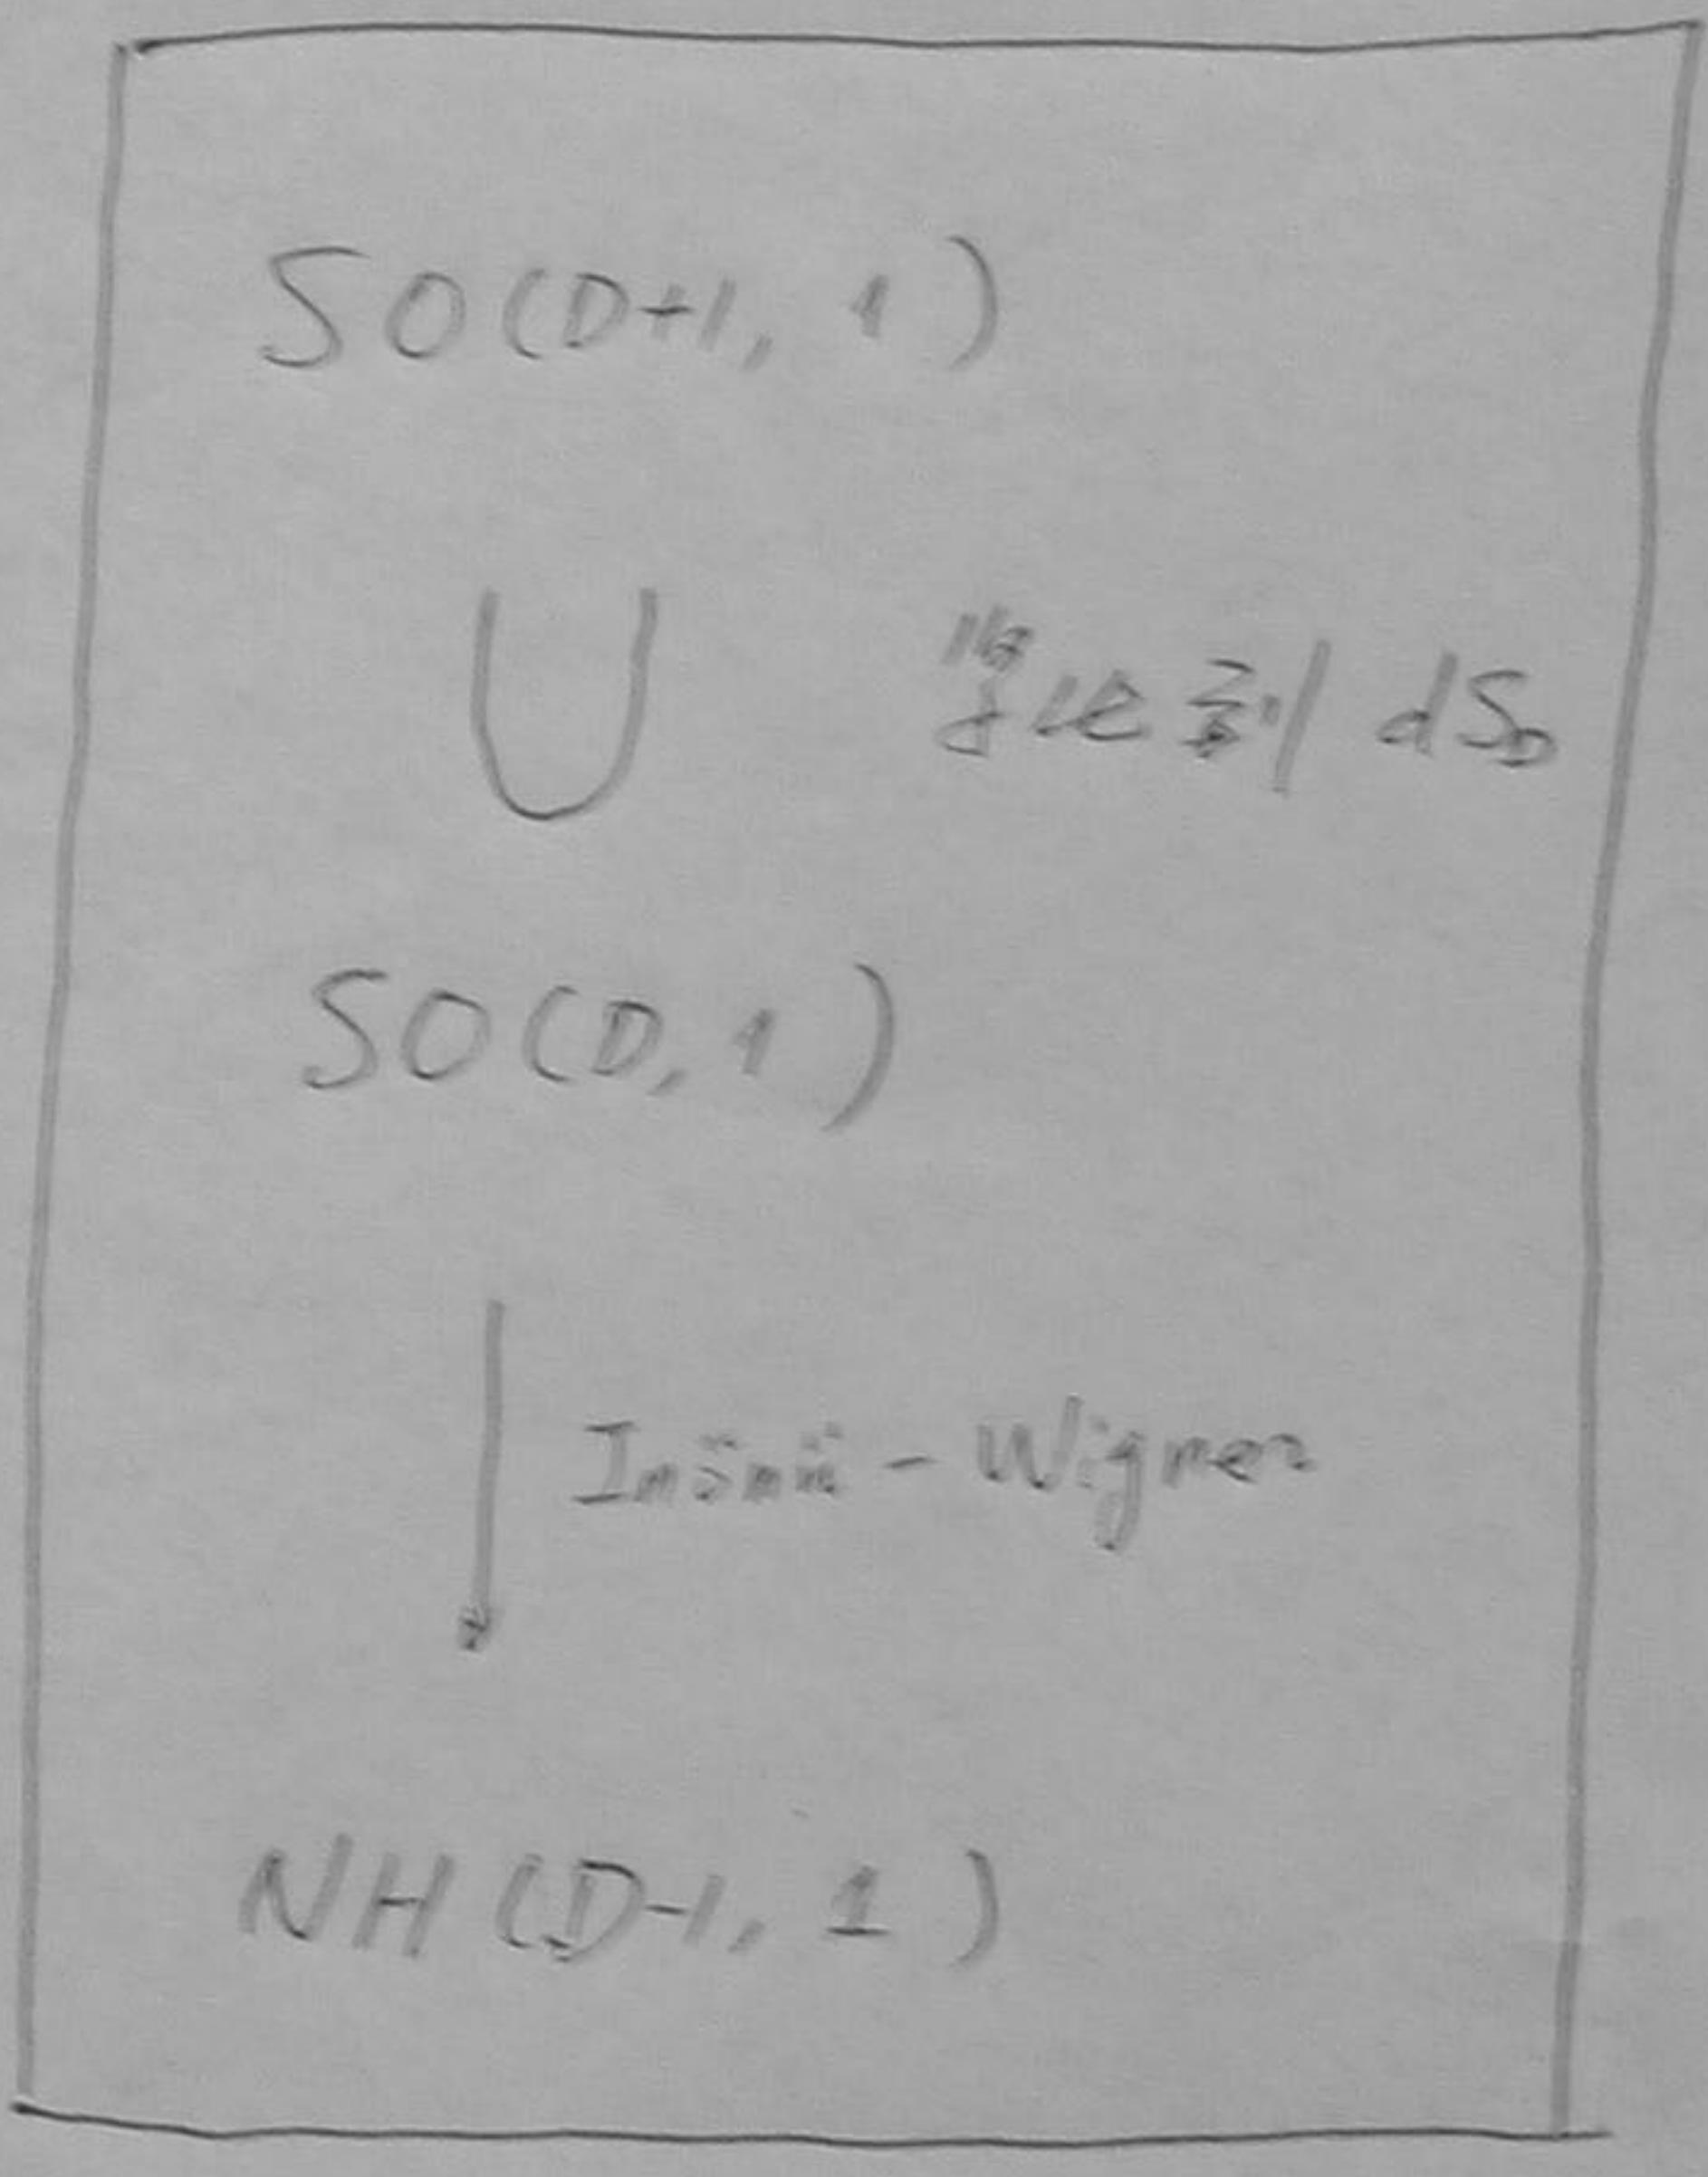 SO(D+1, 1)
∪ 紧化到 dS_D
SO(D, 1)
↓ Inönü - Wigner
NH(D-1, 1)